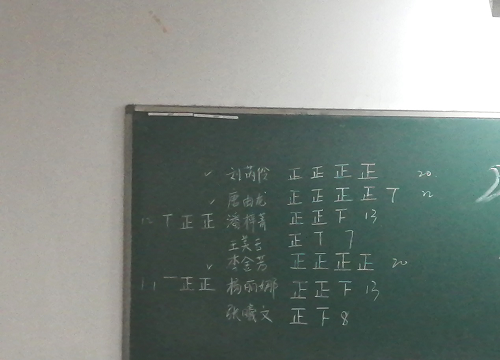 ✓ 刘 正正正正 20
✓ 唐 龙 正正正正丅 22
12 丅正正 潘梓菁 正正下 13
王美云 正丅 7
✓ 李金芳 正正正正 20
11 一正正 杨丽娜 正正下 13
张曦文 正下 8